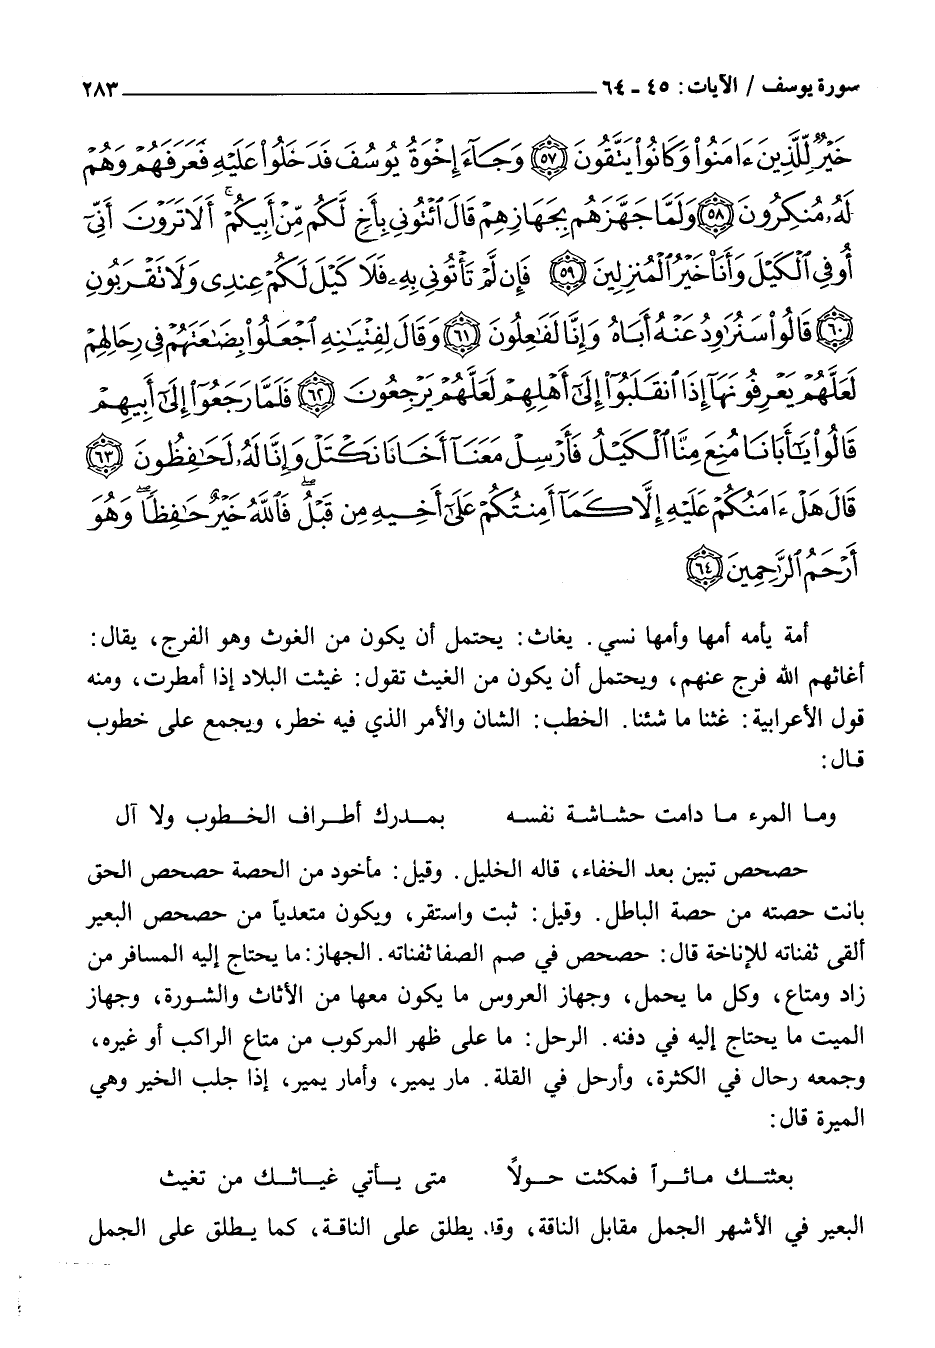 سورة يوسف / الآيات: ٤٥ ـ ٦٤ ٢٨٣
خَيْرٌ لِّلَّذِينَ ءَامَنُوا۟ وَكَانُوا۟ يَتَّقُونَ ﴿٥٧﴾ وَجَآءَ إِخْوَةُ يُوسُفَ فَدَخَلُوا۟ عَلَيْهِ فَعَرَفَهُمْ وَهُمْ
لَهُۥ مُنكِرُونَ ﴿٥٨﴾ وَلَمَّا جَهَّزَهُم بِجَهَازِهِمْ قَالَ ٱئْتُونِى بِأَخٍ لَّكُم مِّنْ أَبِيكُمْ ۚ أَلَا تَرَوْنَ أَنِّىٓ
أُوفِى ٱلْكَيْلَ وَأَنَا۠ خَيْرُ ٱلْمُنزِلِينَ ﴿٥٩﴾ فَإِن لَّمْ تَأْتُونِى بِهِۦ فَلَا كَيْلَ لَكُمْ عِندِى وَلَا تَقْرَبُونِ
﴿٦٠﴾ قَالُوا۟ سَنُرَٰوِدُ عَنْهُ أَبَاهُ وَإِنَّا لَفَٰعِلُونَ ﴿٦١﴾ وَقَالَ لِفِتْيَٰنِهِ ٱجْعَلُوا۟ بِضَٰعَتَهُمْ فِى رِحَالِهِمْ
لَعَلَّهُمْ يَعْرِفُونَهَآ إِذَا ٱنقَلَبُوٓا۟ إِلَىٰٓ أَهْلِهِمْ لَعَلَّهُمْ يَرْجِعُونَ ﴿٦٢﴾ فَلَمَّا رَجَعُوٓا۟ إِلَىٰٓ أَبِيهِمْ
قَالُوا۟ يَٰٓأَبَانَا مُنِعَ مِنَّا ٱلْكَيْلُ فَأَرْسِلْ مَعَنَآ أَخَانَا نَكْتَلْ وَإِنَّا لَهُۥ لَحَٰفِظُونَ ﴿٦٣﴾
قَالَ هَلْ ءَامَنُكُمْ عَلَيْهِ إِلَّا كَمَآ أَمِنتُكُمْ عَلَىٰٓ أَخِيهِ مِن قَبْلُ ۖ فَٱللَّهُ خَيْرٌ حَٰفِظًا ۖ وَهُوَ
أَرْحَمُ ٱلرَّٰحِمِينَ ﴿٦٤﴾
أمة يأمه أمها وأمها نسي. يغاث: يحتمل أن يكون من الغوث وهو الفرج، يقال:
أغاثهم الله فرج عنهم، ويحتمل أن يكون من الغيث تقول: غيثت البلاد إذا أمطرت، ومنه
قول الأعرابية: غثنا ما شئنا. الخطب: الشان والأمر الذي فيه خطر، ويجمع على خطوب
قال:
وما المرء ما دامت حشاشة نفسه بمدرك أطراف الخطوب ولا آل
حصحص تبين بعد الخفاء، قاله الخليل. وقيل: مأخود من الحصة حصحص الحق
بانت حصته من حصة الباطل. وقيل: ثبت واستقر، ويكون متعدياً من حصحص البعير
ألقى ثفناته للإناخة قال: حصحص في صم الصفا ثفناته. الجهاز: ما يحتاج إليه المسافر من
زاد ومتاع، وكل ما يحمل، وجهاز العروس ما يكون معها من الأثاث والشورة، وجهاز
الميت ما يحتاج إليه في دفنه. الرحل: ما على ظهر المركوب من متاع الراكب أو غيره،
وجمعه رحال في الكثرة، وأرحل في القلة. مار يمير، وأمار يمير، إذا جلب الخير وهي
الميرة قال:
بعثتك مائراً فمكثت حولاً متى يأتي غياثك من تغيث
البعير في الأشهر الجمل مقابل الناقة، وقد يطلق على الناقة، كما يطلق على الجمل